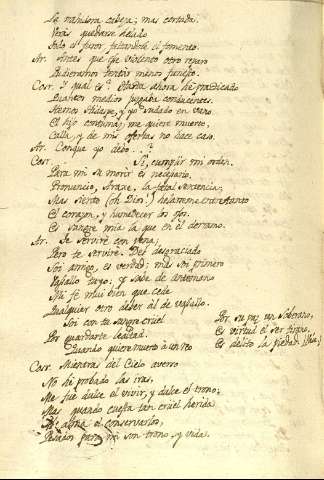 La traidora cabeza; mas cortada,
Verás quedarse helado
Todo el furor, faltandole el fomento.
Ar. Antes que tan violento otro reparo
Pudieramos tentar menos funesto.
Cosr. Y qual es? Hasta ahora he practicado
Quantos medios juzgaba conducentes.
Hemos Hidaspe, y yo sudado en vano.
El hijo contumaz me quiere muerto;
Calla, y de mis ofertas no hace caso.
Ar. Conque yo debo...?
Cosr. Sí, cumplir mi orden.
Para mi su morir es necesario.
Pronuncio, Araxe, la fatal sentencia;
Mas siento (oh Dios!) helarseme entretanto
El corazon, y humedecer los ojos.
Es sangre mia la que en él derramo.
Ar. Se servirá con pena;
Pero te serviré. Del desgraciado
Soi amigo, es verdad; mas soi primero
Vasallo tuyo; y sabe de antemano
Mi fé mui bien que cede
Qualquier otro deber al de vasallo.
Soi con tu sangre cruel
Por guardarte lealtad.
Quando quiere muerto à un reo
Por su paz un Soberano,
Es virtud el ser tirano,
Es delito la piedad. (Vase)
Cosr. Mientras del Cielo averso
No he probado las iras,
Me fue dulce el vivir, y dulce el trono;
Mas quando cuesta tan cruel herida
Al alma el conservarlos,
Pesados para mi son trono, y vida.